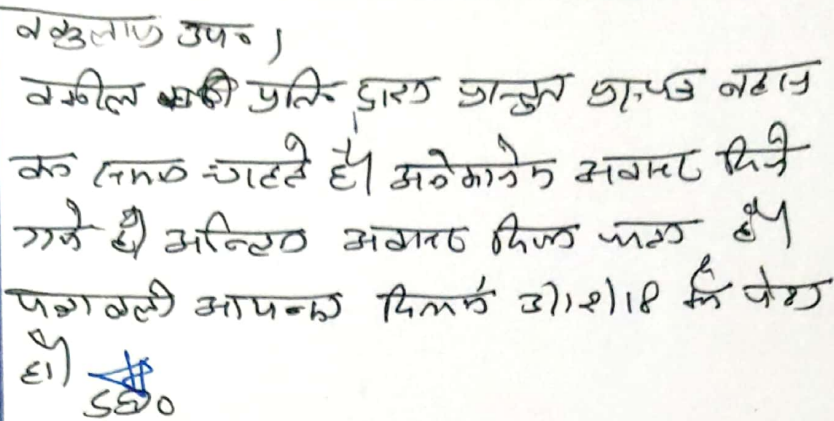 वकुलाय उप०।
वकील वादी प्रति द्वारा प्रस्तुत प्रा.पत्र बहस
का समय चाहते है। अनेकानेक अवसर दिये
गये है। अन्तिम अवसर दिया जाता है।
पत्रावली आयन्दा दिनांक 3/12/18 को पेश
हो।
SDO